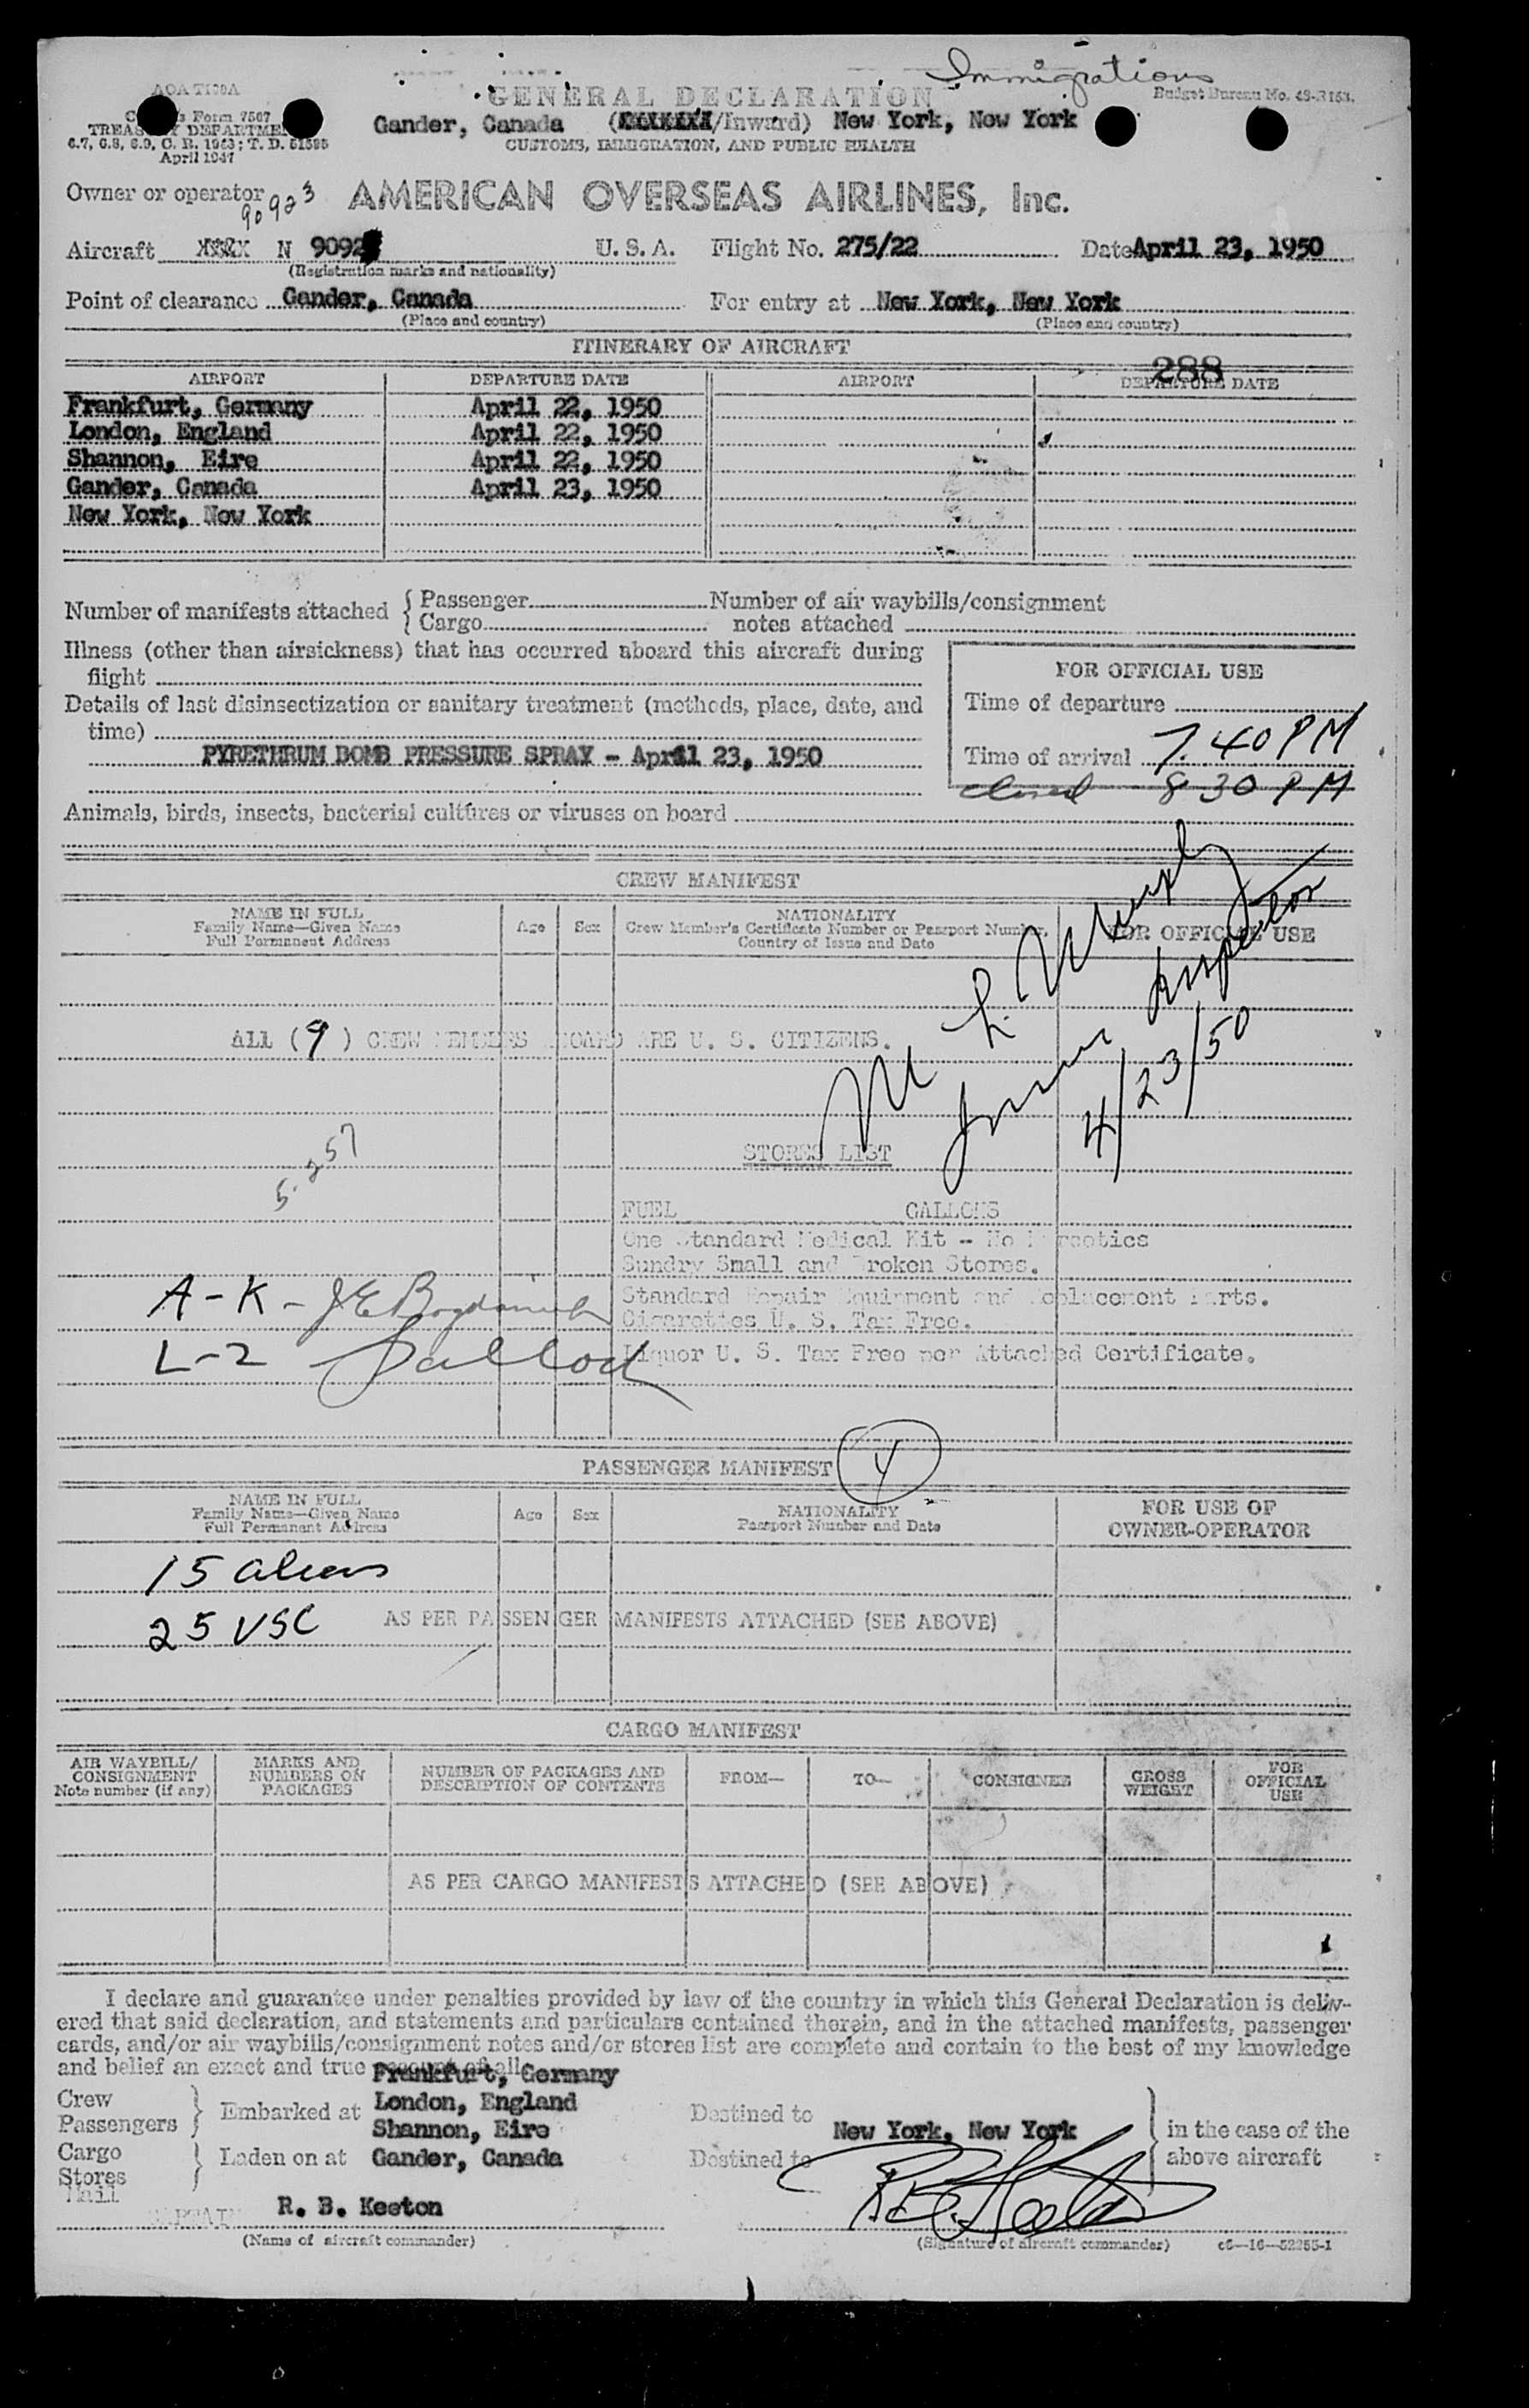 Immigrations
AOA T100A
GENERAL DECLARATION
Budget Bureau No. 48-R163.
Form 7507
TREASURY DEPARTMENT
6.7, 6.8, 6.9, C. R. 1943; T. D. 51595
April 1947
Gander, Canada (/Inward) New York, New York
CUSTOMS, IMMIGRATION, AND PUBLIC HEALTH
Owner or operator AMERICAN OVERSEAS AIRLINES, Inc.
90923
Aircraft N 9092 U. S. A. Flight No. 275/22 Date April 23, 1950
(Registration marks and nationality)
Point of clearance Gander, Canada For entry at New York, New York
(Place and country) (Place and country)
ITINERARY OF AIRCRAFT
288
AIRPORT DEPARTURE DATE AIRPORT DEPARTURE DATE
Frankfurt, Germany April 22, 1950
London, England April 22, 1950
Shannon, Eire April 22, 1950
Gander, Canada April 23, 1950
New York, New York
Number of manifests attached { Passenger Number of air waybills/consignment
{ Cargo notes attached
Illness (other than airsickness) that has occurred aboard this aircraft during
flight
FOR OFFICIAL USE
Details of last disinsectization or sanitary treatment (methods, place, date, and
time)
Time of departure
PYRETHRUM BOMB PRESSURE SPRAY - April 23, 1950
Time of arrival 7.40 PM
closed 8 30 PM
Animals, birds, insects, bacterial cultures or viruses on board
CREW MANIFEST
NAME IN FULL
Family Name—Given Name
Full Permanent Address
Age Sex
NATIONALITY
Crew Member's Certificate Number or Passport Number,
Country of Issue and Date
FOR OFFICIAL USE
M L Murphy
Immigrant Inspector
4/23/50
ALL (9) CREW MEMBERS ABOARD ARE U. S. CITIZENS.
STORES LIST
5.257
FUEL GALLONS
One Standard Medical Kit - No Narcotics
Sundry Small and Broken Stores.
A-K-
Standard Repair Equipment and Replacement Parts.
Cigarettes U. S. Tax Free.
L-Z
Liquor U. S. Tax Free per Attached Certificate.
PASSENGER MANIFEST
NAME IN FULL
Family Name—Given Name
Full Permanent Address
Age Sex
NATIONALITY
Passport Number and Date
FOR USE OF
OWNER-OPERATOR
15 aliens
25 USC AS PER PASSENGER MANIFESTS ATTACHED (SEE ABOVE)
CARGO MANIFEST
AIR WAYBILL/
CONSIGNMENT
Note number (if any)
MARKS AND
NUMBERS ON
PACKAGES
NUMBER OF PACKAGES AND
DESCRIPTION OF CONTENTS
FROM—
TO—
CONSIGNEE
GROSS
WEIGHT
FOR
OFFICIAL
USE
AS PER CARGO MANIFESTS ATTACHED (SEE ABOVE)
I declare and guarantee under penalties provided by law of the country in which this General Declaration is deliv-
ered that said declaration, and statements and particulars contained therein, and in the attached manifests, passenger
cards, and/or air waybills/consignment notes and/or stores list are complete and contain to the best of my knowledge
and belief an exact and true account of all
Frankfurt, Germany
Crew
Passengers } Embarked at London, England Destined to
Shannon, Eire New York, New York in the case of the
Cargo
Stores } Laden on at Gander, Canada Destined to above aircraft
Mail
CAPTAIN R. B. Keeton
(Name of aircraft commander) (Signature of aircraft commander) c6—16—52255-1